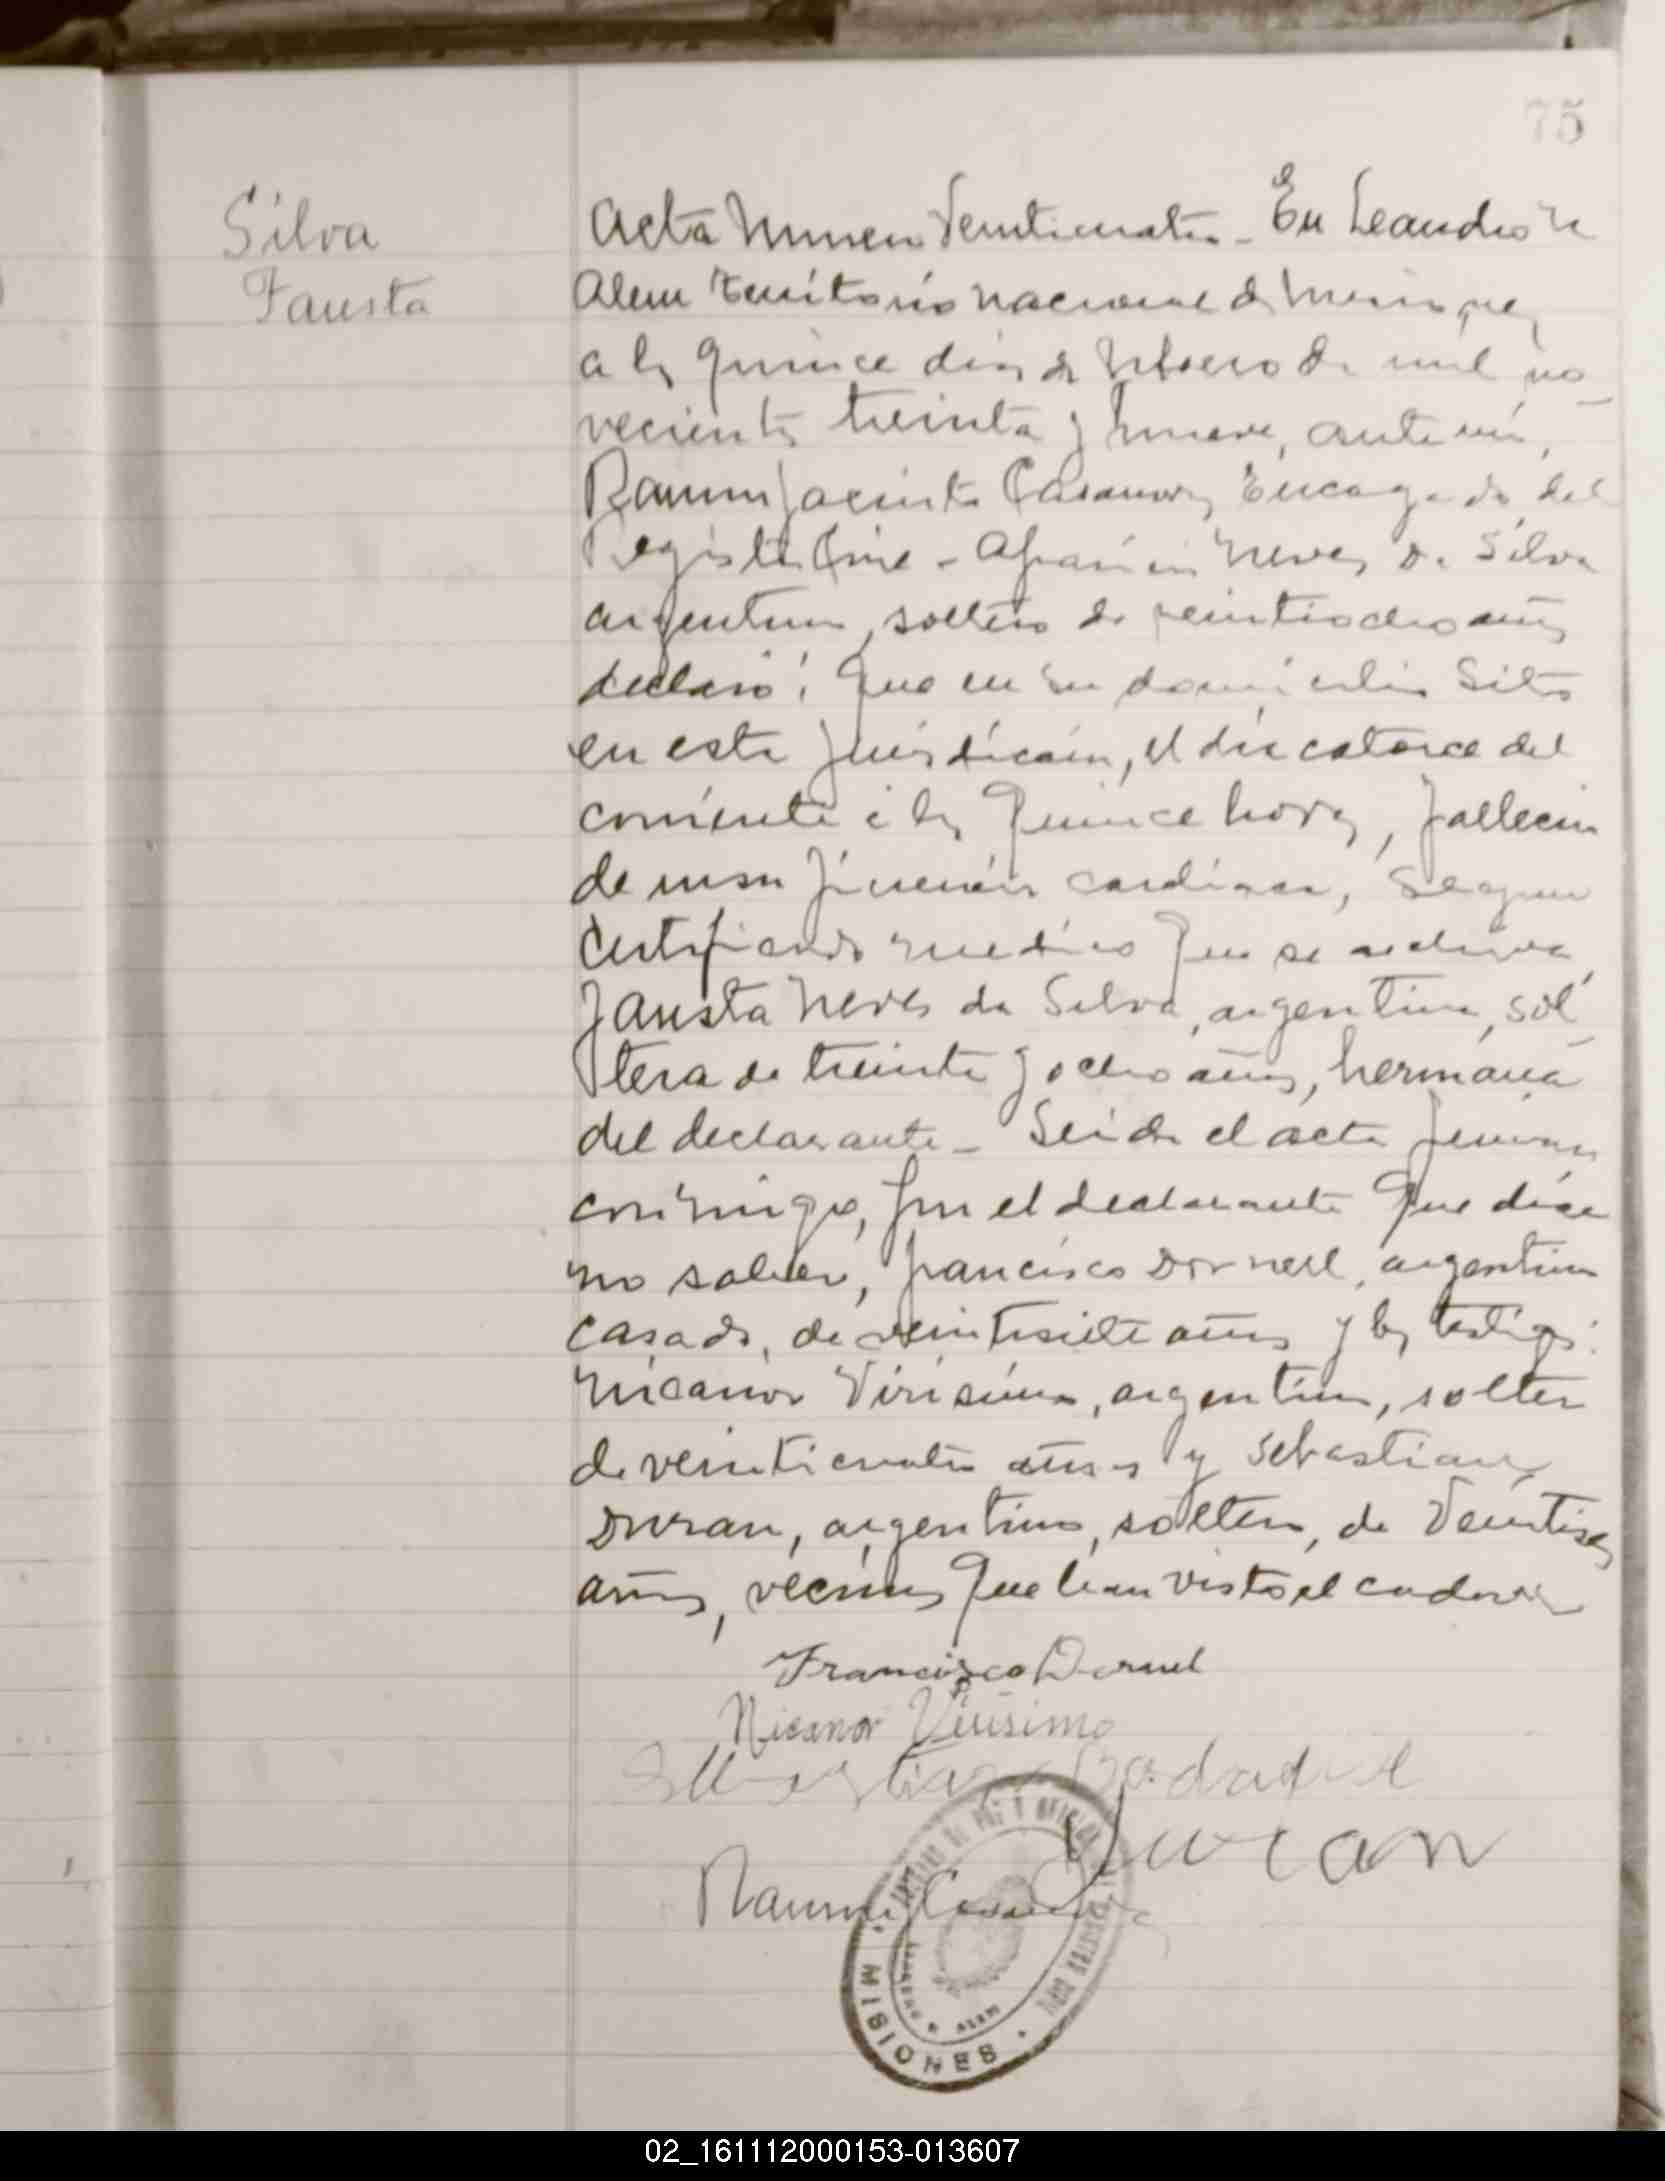 75
Silva
Fausta
Acta Numero Veinticuatro - En Leandro N
Alem Territorio nacional de Misiones,
a los quince dias de de mil no-
vecientos treinta y nueve, ante mi,
Ramon Jacinto Casanova, Encargado del
Registro Civil - Neves da Silva
argentino, soltero de veintiocho años
declaró: Que en su domicilio sito
en esta jurisdicción, el dia catorce del
corriente a las quince horas, fallecio
de cardiaca, segun
certificado medico que se archiva,
Fausta Neves da Silva, argentina, sol-
tera de treinta y ocho años, hermana
del declarante - Leida el acta firman
conmigo, por el declarante que dice
no saber, Francisco Dornel, argentino
casado, de veintisiete años y los testigos:
Nicanor Virisimo, argentino, soltero
de veinticuatro años y Sebastian
Duran, argentino, soltero, de veintiseis
años, vecinos que han visto el cadaver
Francisco Dornel
Nicanor Virisimo
Duran
Ramon J Casanova
JUZGADO DE PAZ Y OFICINA DEL REGISTRO CIVIL
LEANDRO N. ALEM
MISIONES
02_161112000153-013607